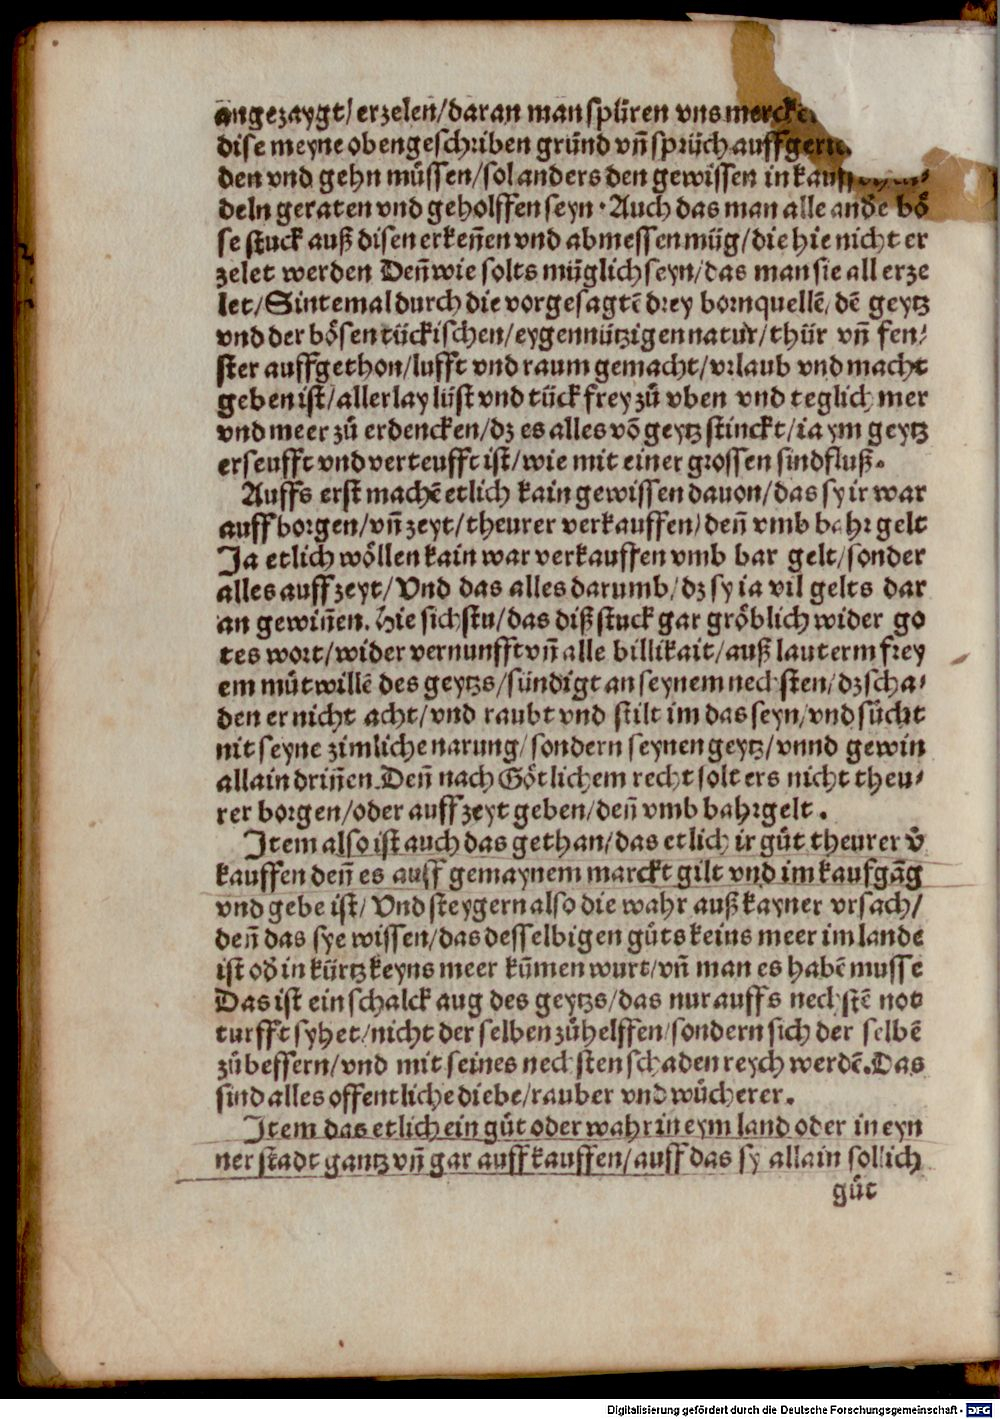 angezaygt/ erzelen/daran man spüren vns
dise meyne obengeschriben gründ vn̄ sprüch
den vnd gehn müssen/sol anders den gewissen in
deln geraten vnd geholffen seyn · Auch das man alle andʼe bö
se stuck auß disen erkeñen vnd abmessen müg/die hie nicht er
zelet werden Deñ wie solts müglich seyn/das man sie all erze
let/Sintemal durch die vorgesagtē drey bornquellē/ dē geytz
vnd der bösen tückischen/eygennützigen natur/thür vn̄ fen⸗
ster auffgethon/lufft vnd raum gemacht/vrlaub vnd macht
geben ist/allerlay lüst vnd tück frey zů vben vnd teglich mer
vnd meer zů erdencken/dz es alles vō geytz stinckt/ia ym geytz
erseufft vnd verteufft ist/wie mit einer grossen sindfluß.
Auffs erst machē etlich kain gewissen dauon/das sy ir war
auff borgen/vn̄ zeyt/theurer verkauffen/deñ vmb bahr gelt
Ja etlich wöllen kain war verkauffen vmb bar gelt/sonder
alles auff zeyt/Vnd das alles darumb/dz sy ia vil gelts dar
an gewiñen. Hie sichstu/das diß stuck gar gröblich wider go
tes wort/wider vernunfft vn̄ alle billikait/auß lauterm frey
em můtwillē des geytzs/sündigt an seynem nechsten/dz scha⸗
den er nicht acht/vnd raubt vnd stilt im das seyn/vnd sůcht
nit seyne zimliche narung/sondern seynen geytz/vnnd gewin
allain driñen. Deñ nach Götlichem recht solt ers nicht theu⸗
rer borgen/oder auff zeyt geben/deñ vmb bahrgelt.
Item also ist auch das gethan/das etlich ir gůt theurer vʼ
kauffen deñ es auff gemaynem marckt gilt vnd im kaufgāg
vnd gebe ist/ Vnd steygern also die wahr auß kayner vrsach/
deñ das sye wissen/das desselbigen gůts keins meer im lande
ist odʼ in kürtz keyns meer kūmen wurt/vn̄ man es habē musse
Das ist ein schalck aug des geytzs/das nur auffs nechstē not
turfft syhet/nicht der selben zůhelffen/sondern sich der selbē
zůbessern/vnd mit seines nechsten schaden reych werdē.Das
sind alles offentliche diebe/rauber vnd wůcherer.
Item das etlich ein gůt oder wahr in eym land oder in eyn
ner stadt gantz vn̄ gar auffkauffen/auff das sy allain sollich
gůt
Digitalisierung gefördert durch die Deutsche Forschungsgemeinschaft - DFG